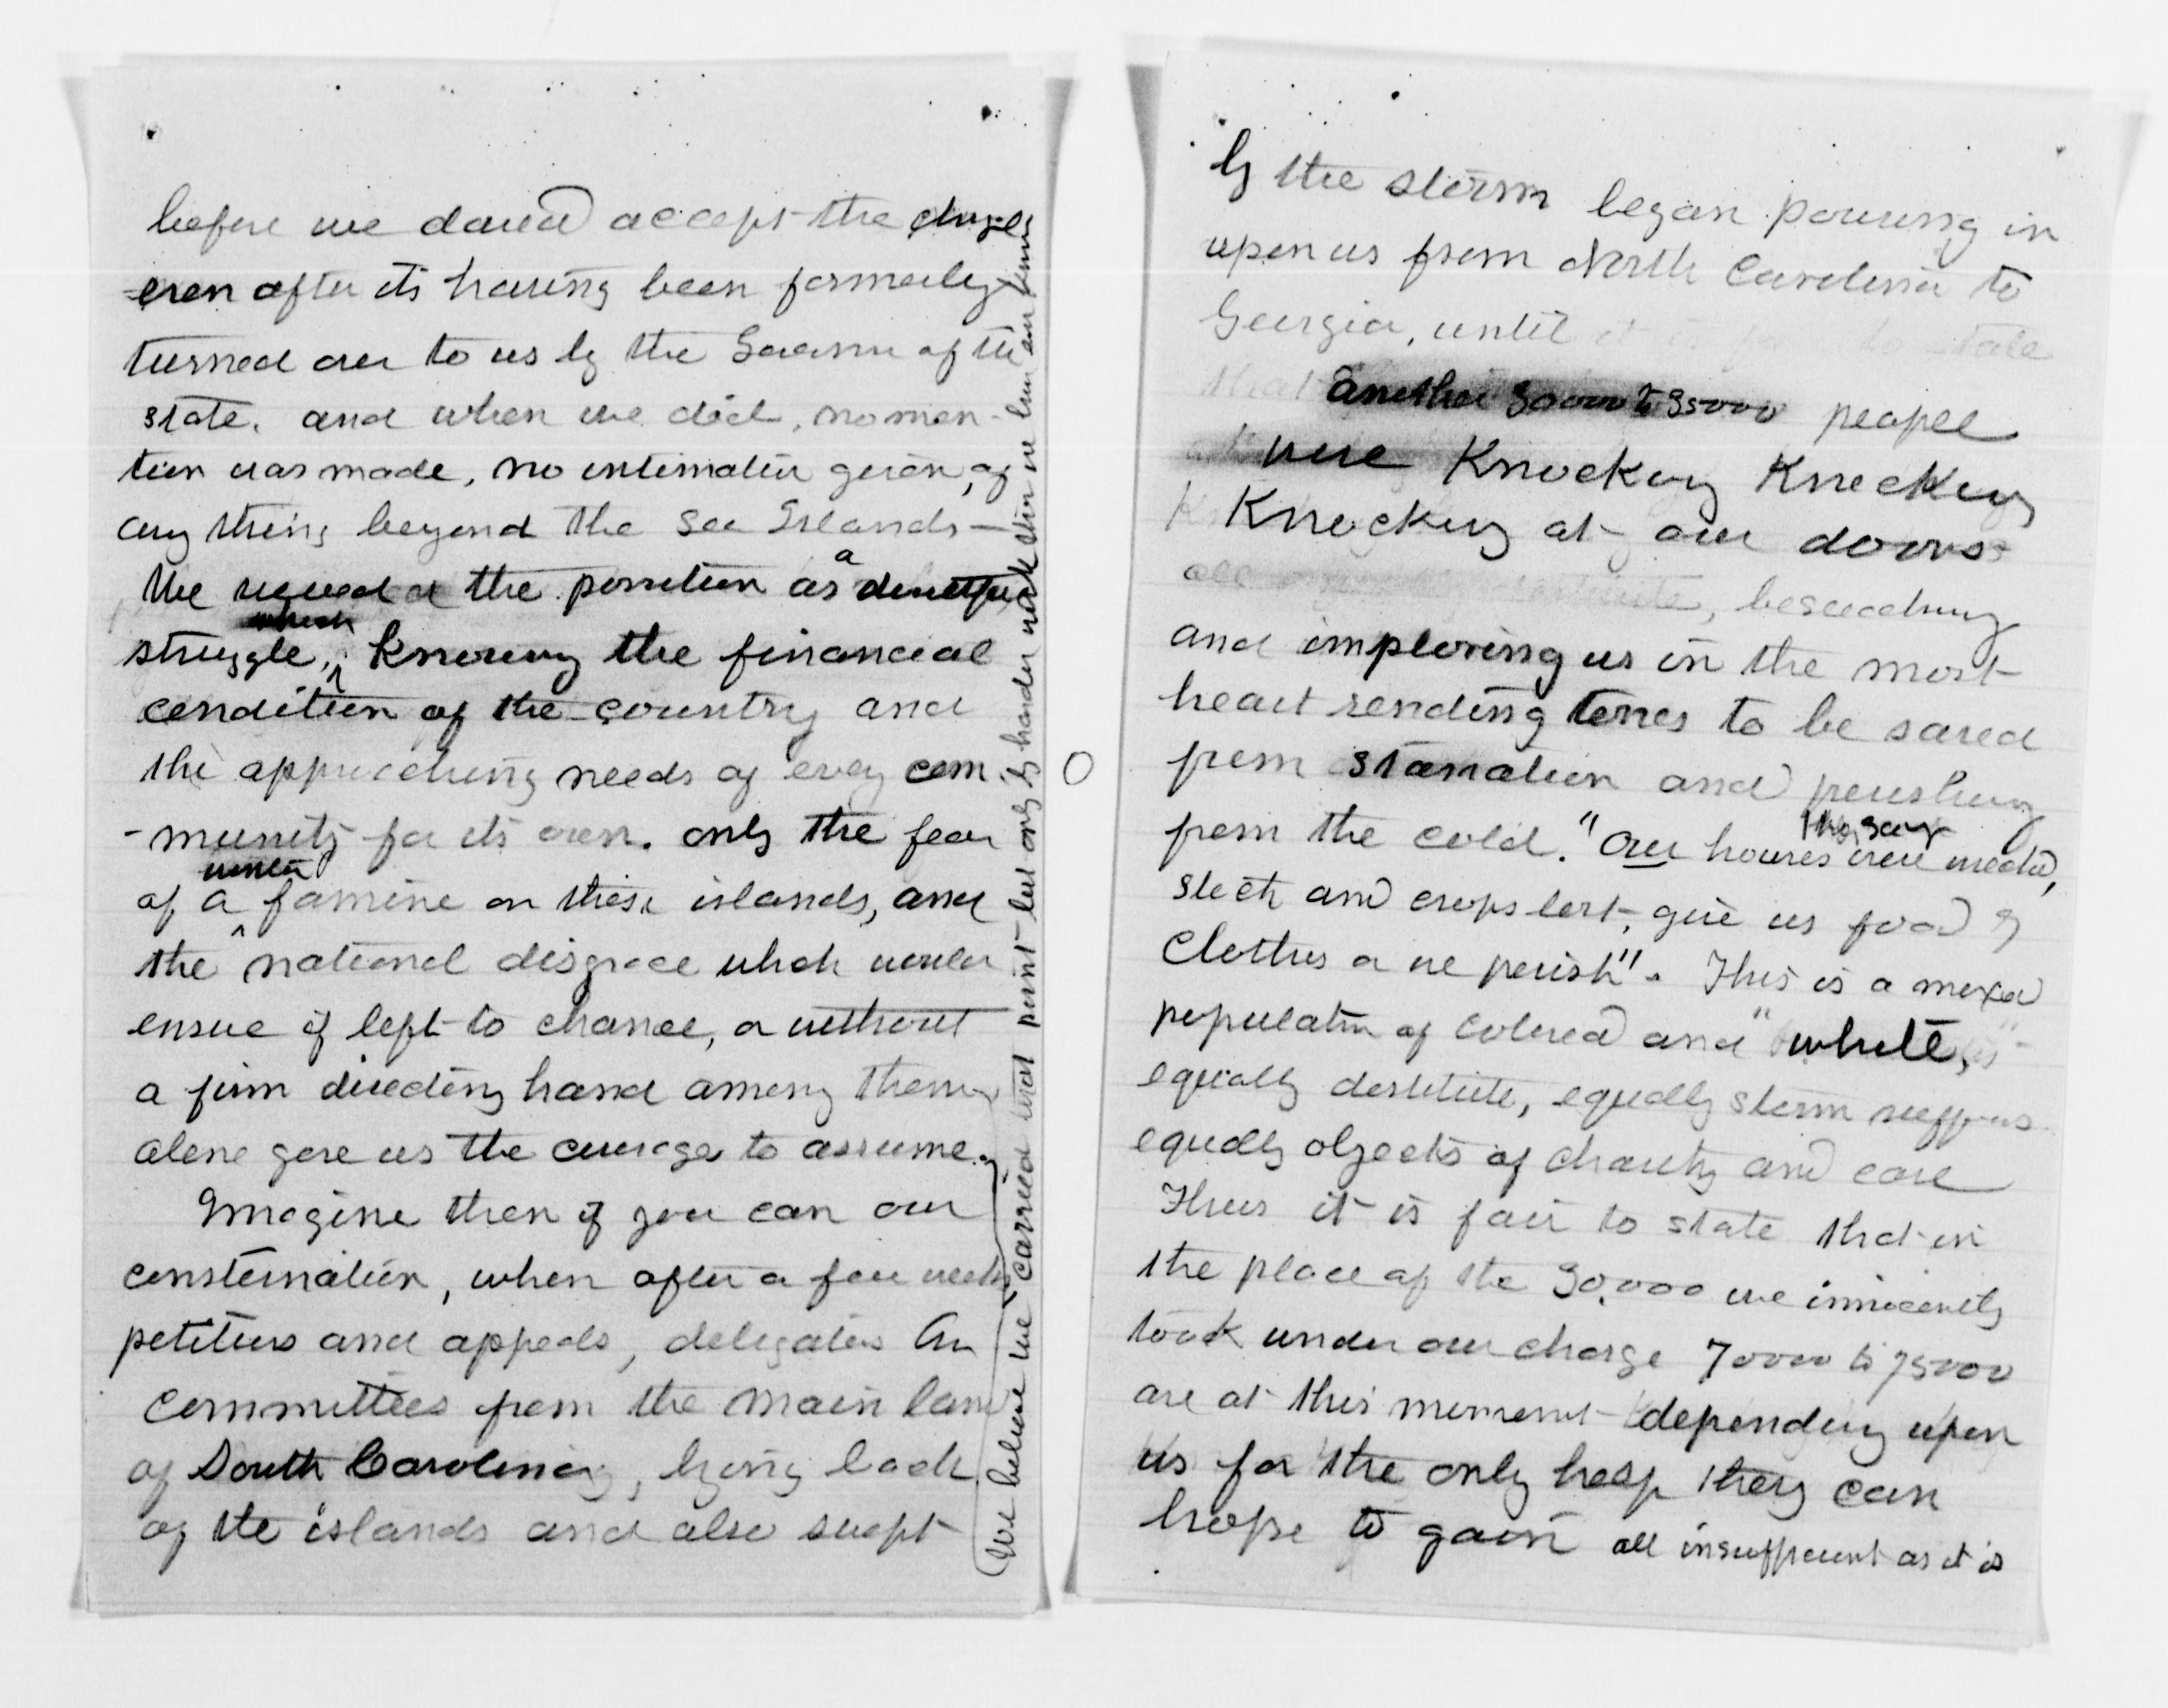 before we dared accept the charge
even after its having been formerly
turned over to us by the Governor of the
state. and when we did, no men-
tion was made, no intimation given, of
any thing beyond the Sea Islands—
We viewed the position as a doubtful
struggle, Knowing the financial
condition of the country and
the approaching needs of every com
-munity for its own. only the fear
of a winter famine on these islands, and
the national disgrace which would
ensue if left to chance, or without
a firm directing hand among them
alone gave us the courage to assume.
Imagine then if you can our
consternation, when after a few weeks
petitions and appeals, delegates and
committees from the main land
of South Carolina, lying back
of the islands and also swept
(We believe we carried that point but only by harder work than we
by the storm began pouring in
upon us from North Carolina to
Georgia, until
another 30000 to 35000 people
were Knocking Knocking
Knocking at our doors
beseeching
and imploring us in the most
heart rending tones to be saved
from starvation and perishing
from the cold. "Our houses they say were wrecked,
stock and crops lost, give us food &
clothes or we perish". This is a mixed
population of colored and "white,"
equally destitute, equally storm sufferers
equally objects of charity and care
Thus it is fair to state that in
the place of the 30.000 we innocently
took under our charge 70000 to 75000
are at this moment depending upon
us for the only help they can
hope to gain all insufficient as it is